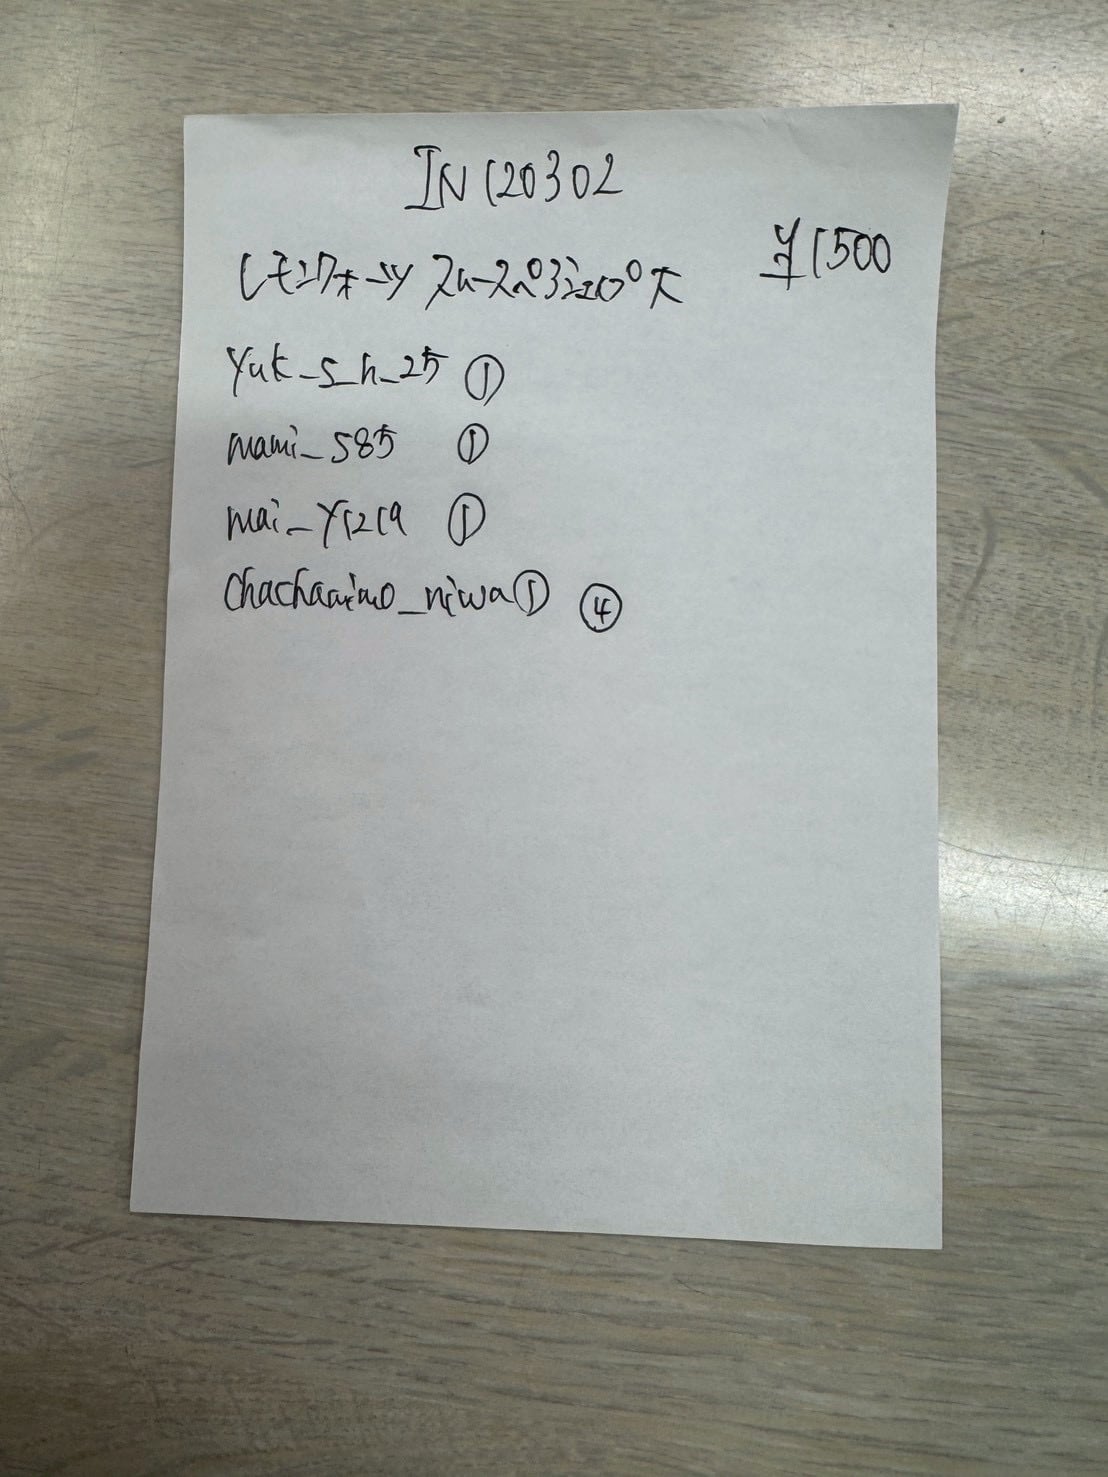 IN120302
¥1500
レモンクォーツ スムースペアシェイプ 大
yuk_s_h_25 ①
mami_585 ①
mai_y1219 ①
chachamimo_niwa① ④